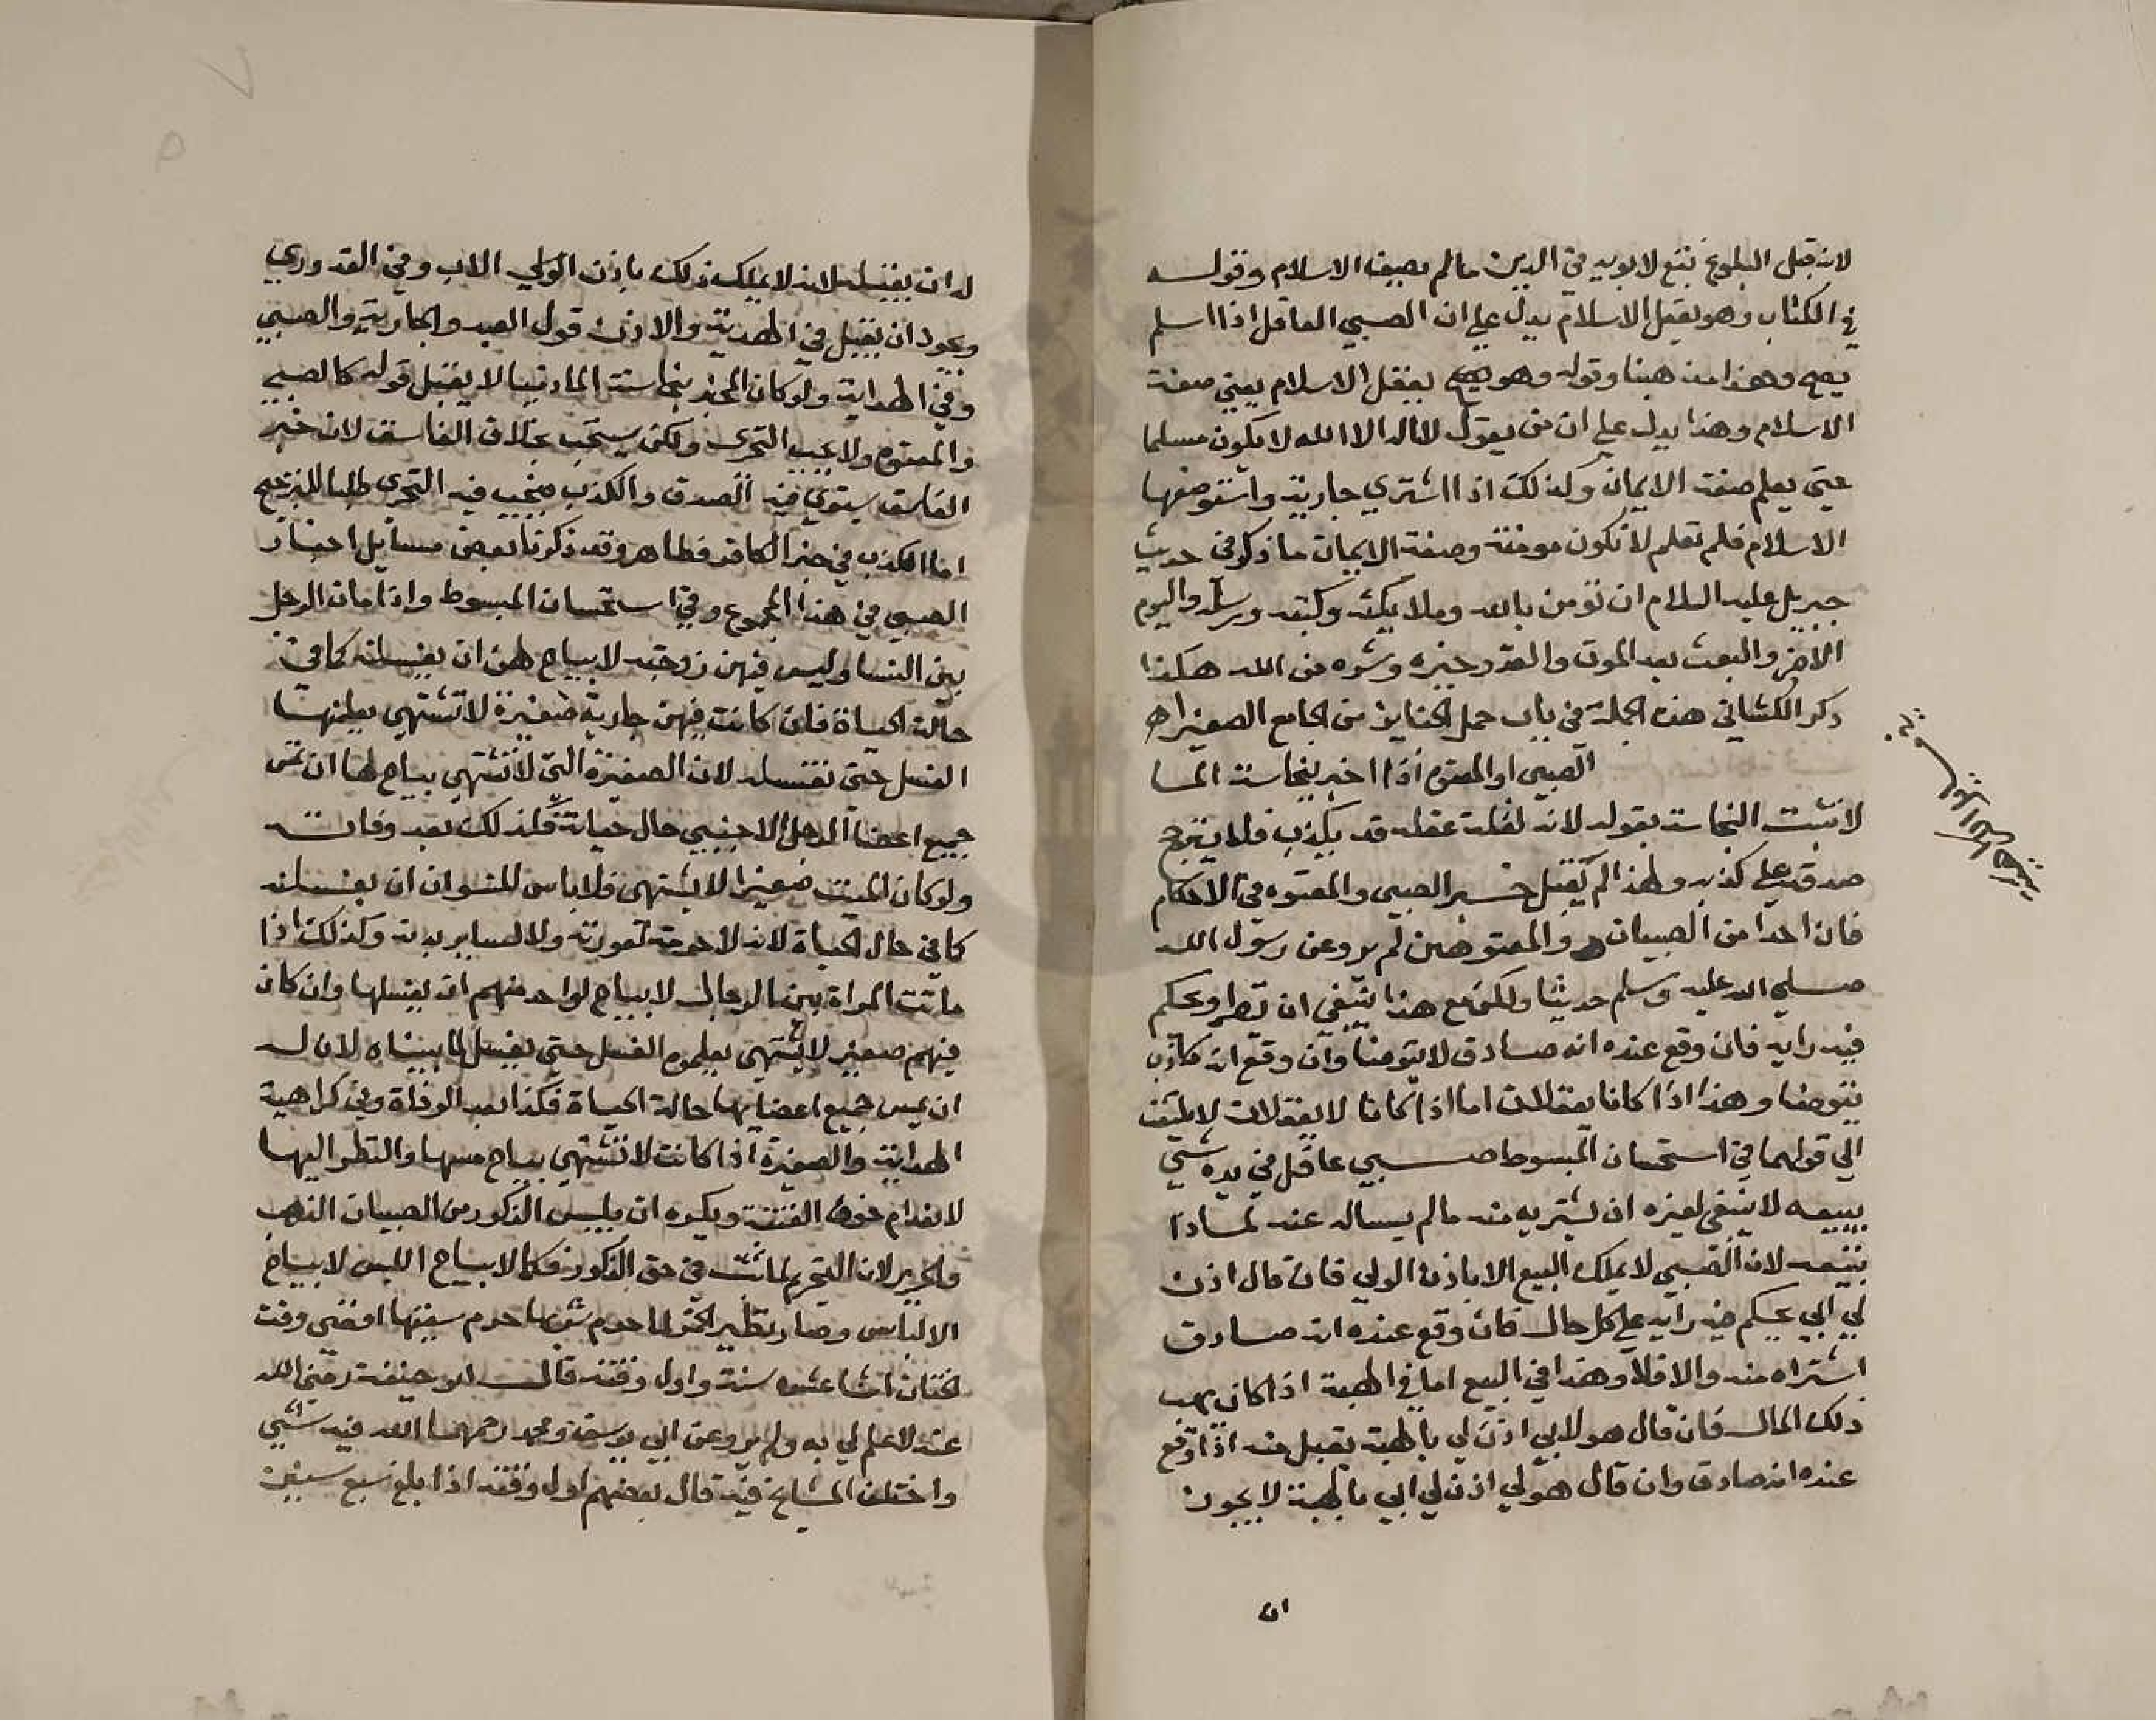 لانه قبل البلوغ تبع لابويه في الدين ما لم يصف الاسلام وقوله
في الكتاب وهو يعقل الاسلام يدل علي ان الصبي العاقل اذا اسلم
يصح وهذا مذهبنا وقوله وهو يعقل الاسلام يعني صفة
الاسلام وهذا يدل علي ان من يقول لا اله الا الله لا يكون مسلما
حتي يعلم صفة الايمان وكذلك اذا اشتري جارية واستوصفها
الاسلام فلم تعلم لا تكون مومنة وصفة الايمان ما ذكر في حديث
جبريل عليه السلام ان تومن بالله وملايكته وكتبه ورسله واليوم
الاخر والبعث بعد الموت والقدر خيره وشره من الله هكذا
ذكر الكشاني هذه الجملة في باب حمل الجنايز من الجامع الصغير اه
الصبي او المعتوه اذا اخبر بنجاسة الما
لا تثبت النجاسة بقوله لانه لغلة عقله قد يكذب فلا يترجح
صدقه علي كذبه ولهذا لم يقبل خبر الصبي والمعتوه في الاحكام
فان احدا من الصبيان والمعتوهين لم يرو عن رسول الله
صلي الله عليه وسلم حديثا ولكن مع هذا ينبغي ان ينظر ويحكم
فيه رايه فان وقع عنده انه صادق لا يتوضا وان وقع انه كاذب
يتوضا وهذا اذا كانا يعقلان اما اذا كانا لا يعقلان لا يلتفت
الي قولهما في استحسان المبسوط صبي عاقل في يده شي
يبيعه لا ينبغي لغيره ان يشتريه منه ما لم يساله عنه لماذا
يبيعه لان الصبي لا يملك البيع الا باذن الولي فان قال اذن
لي ابي يحكم فيه رايه علي كل حال فان وقع عنده انه صادق
اشتراه منه والا فلا وهذا في البيع اما في الهبة اذا كان يهب
ذلك المال فان قال هو لابي اذن لي بالهبة يقبل منه اذا وقع
عنده انه صادق وان قال هو لي اذن لي ابي بالهبة لا يجوز
ان
له ان يقبله لانه لا يملك ذلك باذن الولي الاب وفي القدوري
ويجوز ان يقبل في الهدية والاذن قول العبد والجارية والصبي
وفي الهداية ولو كان المخبر بنجاسة الما ذميا لا يقبل قوله كالصبي
والمعتوه ولا يجب التحري ولكن يستحب بخلاف الفاسق لان خبر
الفاسق يستوي فيه الصدق والكذب فيجب فيه التحري طلبا للترجيح
اما الكذب في خبر الكافر فظاهر وقد ذكرنا بعض مسايل اخبار
الصبي في هذا المجموع وفي استحسان المبسوط واذا مات الرجل
بين النسا وليس فيهن زوجته لا يباح لهن ان يغسلنه كما في
حالة الحياة فان كانت فيهن جارية صغيرة لا تشتهي يعلمنها
الغسل حتي تغسله لان الصغيرة التي لا تشتهي يباح لها ان تمس
جميع اعضا الرجل الاجنبي حال حياته فكذلك بعد وفاته
ولو كان الميت صغيرا لا يشتهي فلا باس للنسوان ان يغسلنه
كما في حال الحياة لانه لا حرمة لعورته ولا لساير بدنه وكذلك اذا
ماتت المراة بين الرجال لا يباح لواحد منهم ان يغسلها وان كان
فيهم صغير لا يشتهي يعلموه الغسل حتي يغسل لما بيناه لان له
ان يمس جميع اعضايها حالة الحياة فكذا بعد الوفاة وفي كراهية
الهداية والصغيرة اذا كانت لا تشتهي يباح مسها والنظر اليها
لانعدام خوف الفتنة ويكره ان يلبس الذكور من الصبيان الذهب
والحرير لان التحريم لما ثبت في حق الذكور فكما لا يباح اللبس لا يباح
الالباس وصار نظير الخمر لما حرم شربها حرم سقيها اقصي وقت
الختان اثنا عشر سنة واول وقته قال ابو حنيفة رضي الله
عنه لا علم لي به ولم يرو عن ابي يوسف ومحمد رحمهما الله فيه شي
واختلف المشايخ فيه قال بعضهم اول وقته اذا بلغ سبع سنين